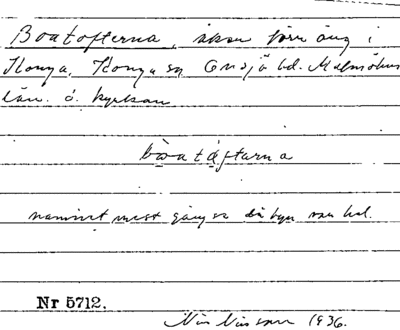 Boatofterna, åker förr äng i
Konga, Konga sn Onsjö hd. Malmöhus
län. ö. kyrkan
bo̱atå̱fterna
namnet mest gängse då byn var hel.
Nr 5712.
Nils Nilsson 1936.